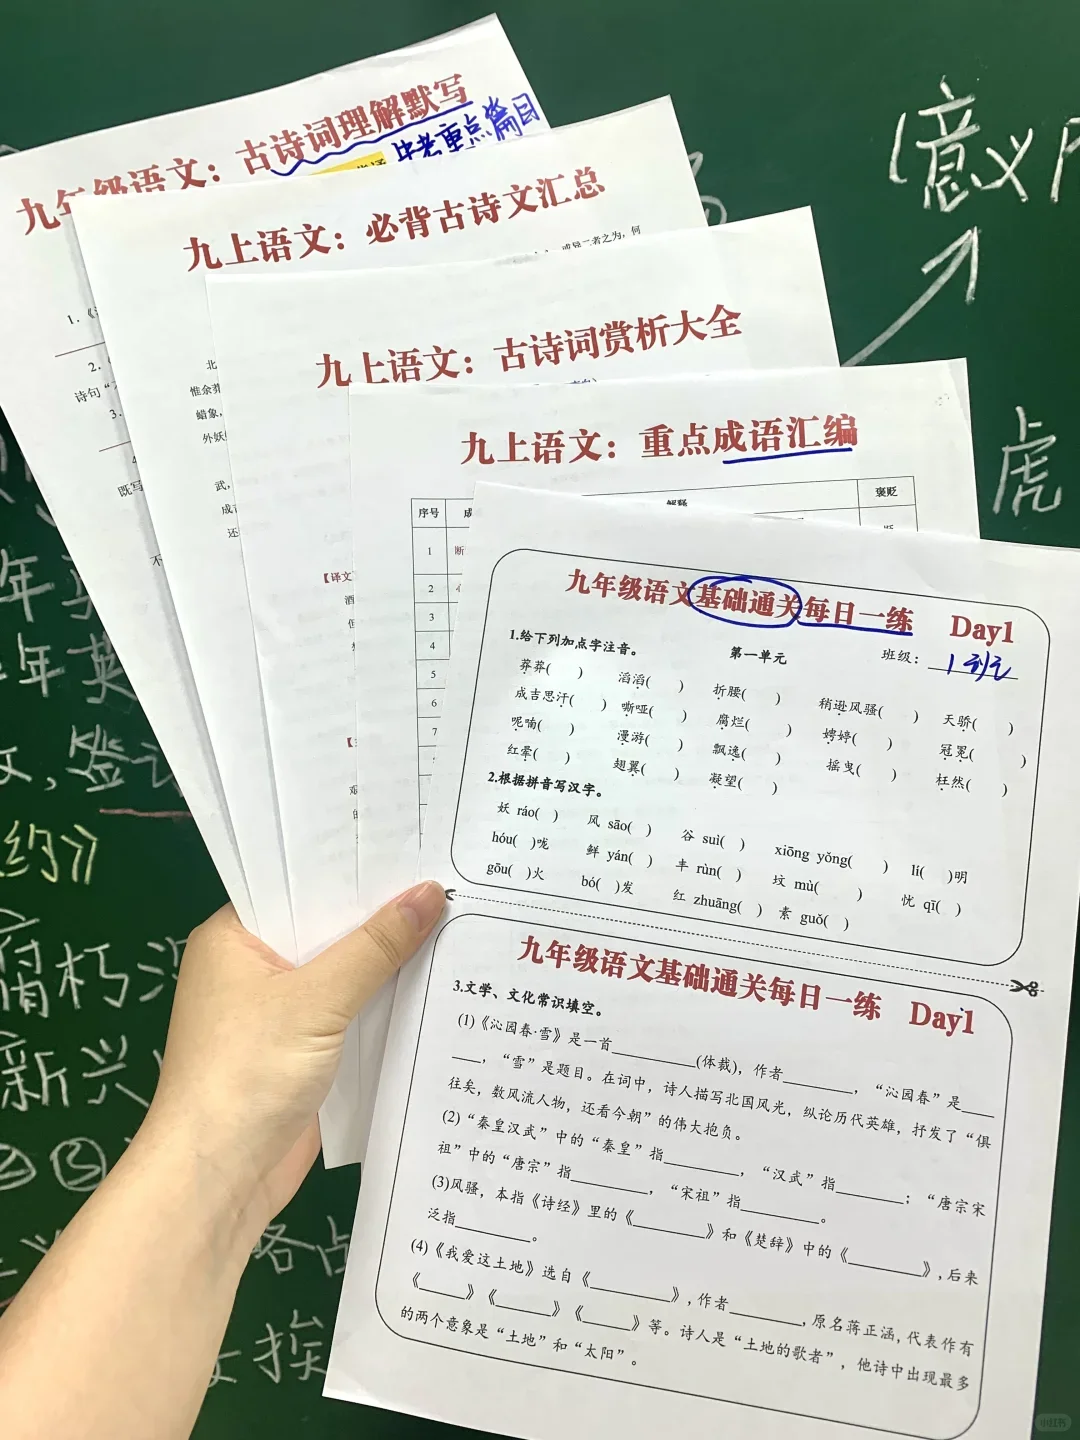 九年级语文：古诗词理解默写
中考重点篇目
1.
2.
诗句“
3.
4
既写
不
九上语文：必背古诗文汇总
或异二者之为，何
北
蜡象，
外妖
武，
成
还
九上语文：古诗词赏析大全
【译文
酒
但
九上语文：重点成语汇编
序号 成 解释 褒贬
1 断
2 心
3
4
5
6
7
九年级语文基础通关每日一练 Day1
1.给下列加点字注音。 第一单元 班级：
莽莽( ) 滔滔( ) 折腰( ) 稍逊风骚( ) 天骄( )
成吉思汗( ) 嘶哑( ) 腐烂( ) 娉婷( ) 冠冕( )
呢喃( ) 漫游( ) 飘逸( ) 摇曳( ) 枉然( )
红晕( ) 翅翼( ) 凝望( )
2.根据拼音写汉字。
妖 ráo( ) 风 sāo( ) 谷 suì( ) xiōng yǒng( ) lí( )明
hóu( )咙 鲜 yán( ) 丰 rùn( ) 坟 mù( ) 忧 qī( )
gōu( )火 bó( )发 红 zhuāng( ) 素 guǒ( )
九年级语文基础通关每日一练 Day1
3.文学、文化常识填空。
(1)《沁园春·雪》是一首________(体裁)，作者________，“沁园春”是____
____，“雪”是题目。在词中，诗人描写北国风光，纵论历代英雄，抒发了“俱
往矣，数风流人物，还看今朝”的伟大抱负。
(2)“秦皇汉武”中的“秦皇”指________，“汉武”指________；“唐宗宋
祖”中的“唐宗”指________，“宋祖”指________。
(3)风骚，本指《诗经》里的《________》和《楚辞》中的《________》,后来
泛指________。
(4)《我爱这土地》选自《________》,作者________,原名蒋正涵,代表作有
《_____》《______》《_____》等。诗人是“土地的歌者”，他诗中出现最多
的两个意象是“土地”和“太阳”。
(意义
虎
年英
文,签
约》
腐朽
新兴
③
略占
挨
小红书